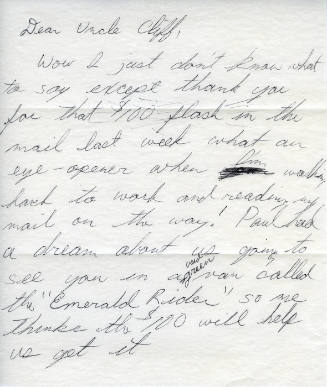 Dear Uncle Cliff,
Wow I just don't know what
to say except thank you
for that $100 flash in the
mail last week what an
eye-opener when I'm walking
back to work and reading my
mail on the way! Paul had
a dream about us going to
see you in a used green van called
the "Emerald Rider" so me
thinks the $100 will help
us get it